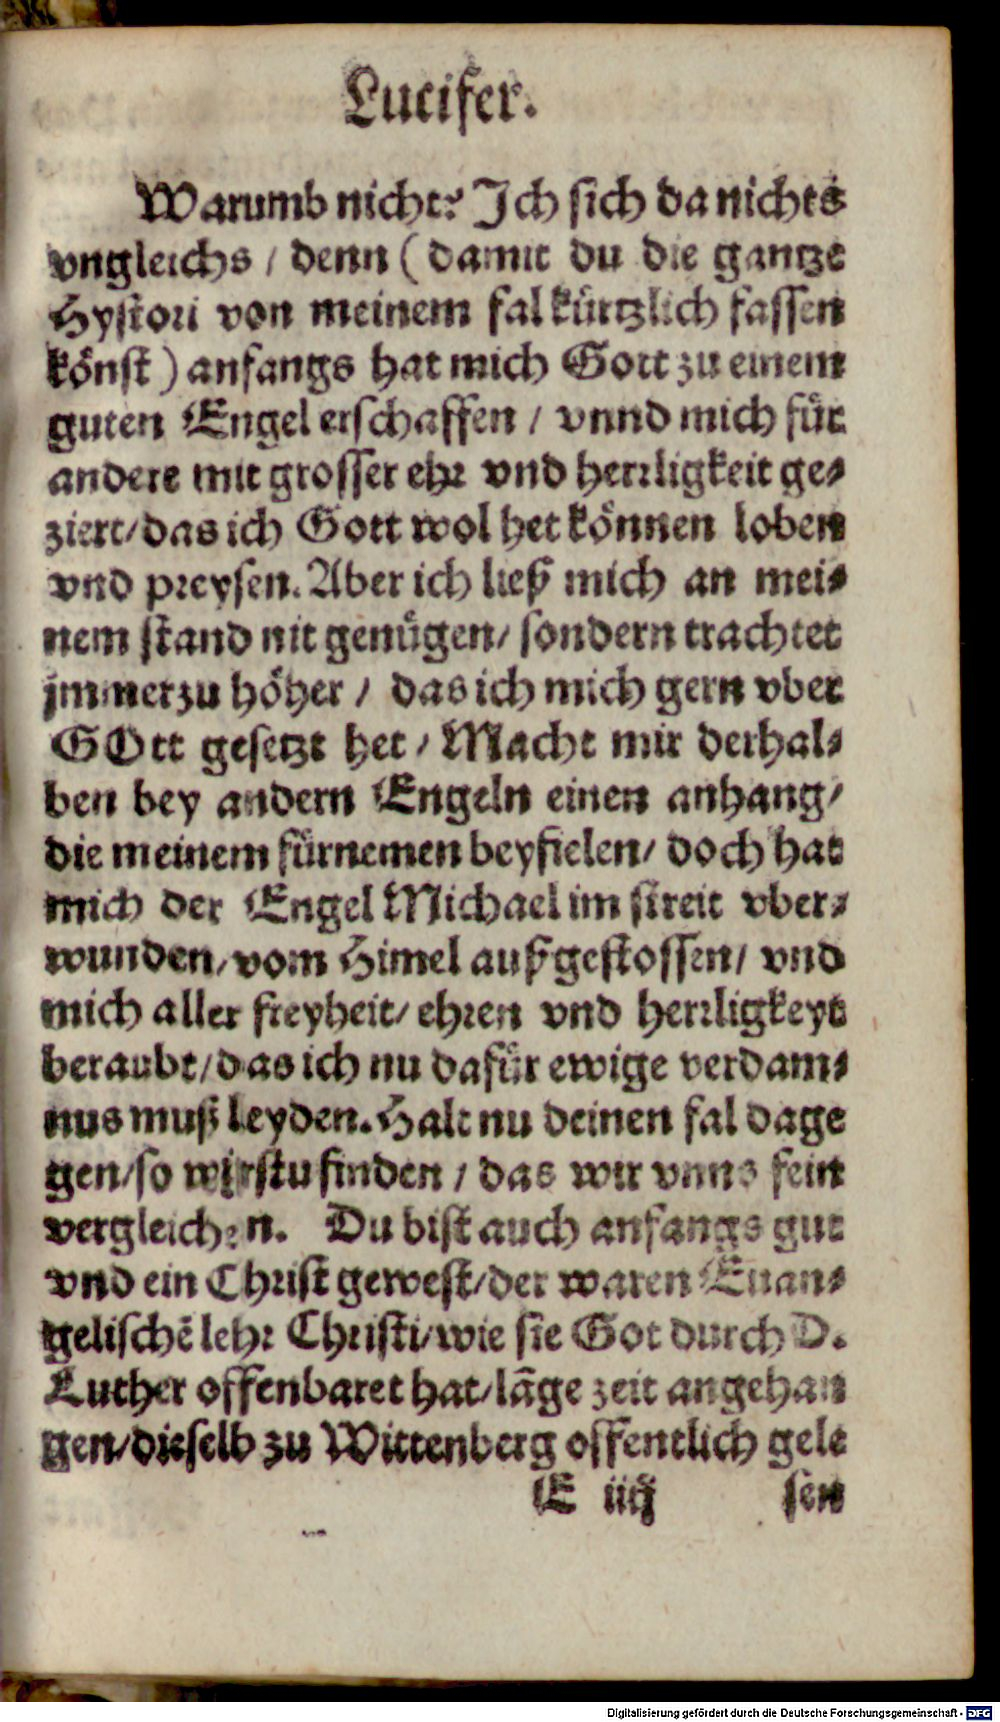 Lucifer.
Warumb nicht? Ich sich da nichts
vngleichs / denn ( damit du die gantze
Hystori von meinem fal kürtzlich fassen
könst ) anfangs hat mich Gott zu einem
guten Engel erschaffen / vnnd mich für
andere mit grosser ehr vnd herrligkeit ge-
ziert / das ich Gott wol het können loben
vnd preysen. Aber ich ließ mich an mei-
nem stand nit genügen / sondern trachtet
jmmerzu höher / das ich mich gern vber
GOtt gesetzt het / Macht mir derhal-
ben bey andern Engeln einen anhang /
die meinem fürnemen beyfielen / doch hat
mich der Engel Michael im streit vber-
wunden / vom Himel außgestossen / vnd
mich aller freyheit / ehren vnd herrligkeyt
beraubt / das ich nu dafür ewige verdam-
nus muß leyden. Halt nu deinen fal dage
gen / so wirstu finden / das wir vnns fein
vergleichen. Du bist auch anfangs gut
vnd ein Christ gewest / der waren Euan-
gelischē lehr Christi / wie sie Got durch D.
Luther offenbaret hat / lāge zeit angehan
gen / dieselb zu Wittenberg offentlich gele
E iiij sen
Digitalisierung gefördert durch die Deutsche Forschungsgemeinschaft - DFG